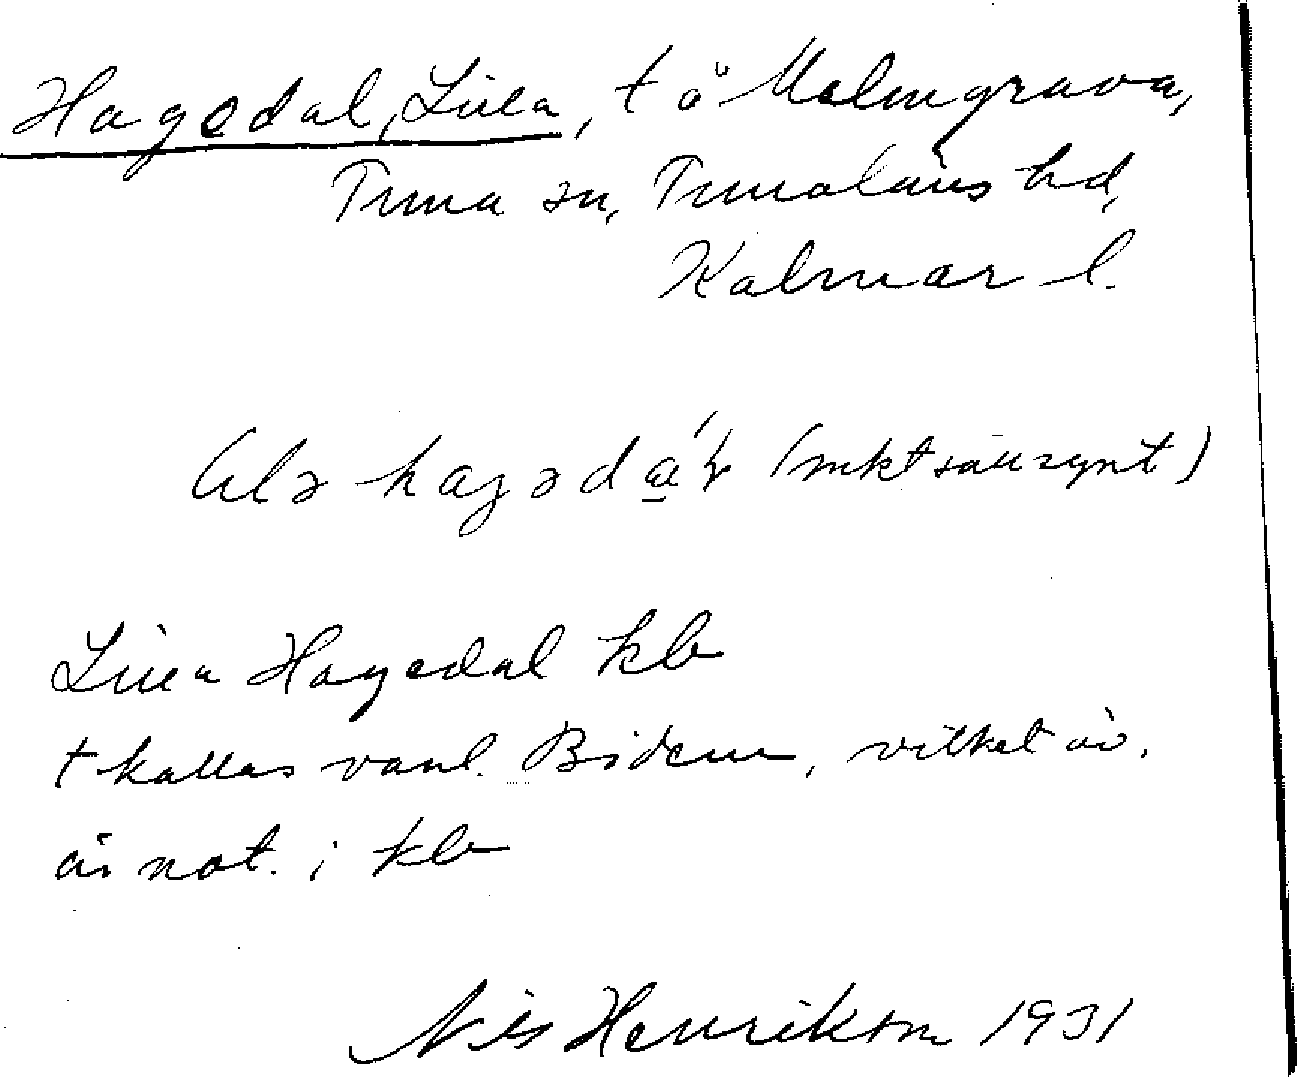 Hagedal, Lilla, t å Malmgrava,
Tuna sn, Tunaläns hd,
Kalmar l.
hagədά̲l (mkt sällsynt)
Lilla Hagedal kb
t kallas vanl. Bidem, vilket äv.
är not. i kb
Nils Henrikson 1931